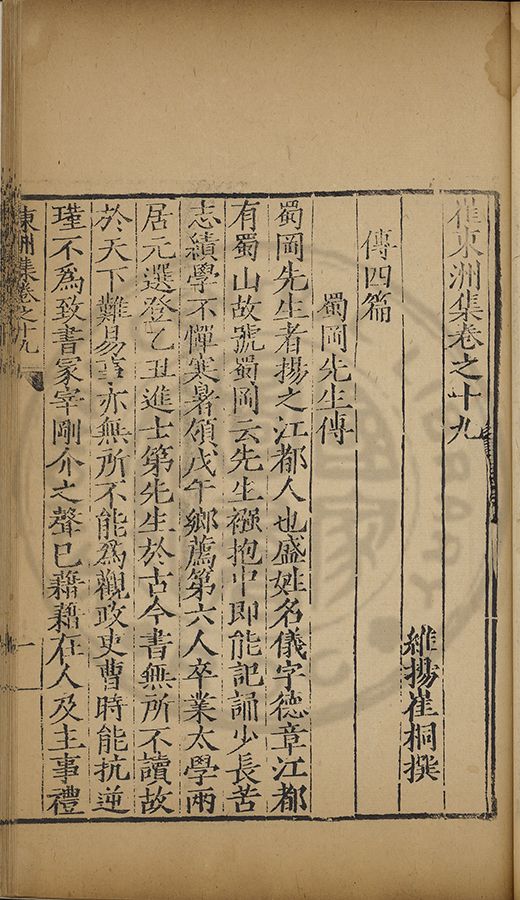 崔東洲集卷之十九
維揚崔桐撰
傳四篇
蜀岡先生傳
蜀岡先生者揚之江都人也盛姓名儀字德章江都
有蜀山故號蜀岡云先生襁抱中即能記誦少長苦
志績學不憚寒暑領戊午鄉薦第六人卒業太學兩
居元選登乙丑進士第先生於古今書無所不讀故
於天下難易事亦無所不能為觀政吏曹時能抗逆
瑾不為致書冢宰剛介之聲已藉藉在人及主事禮
東洲集卷之十九
一